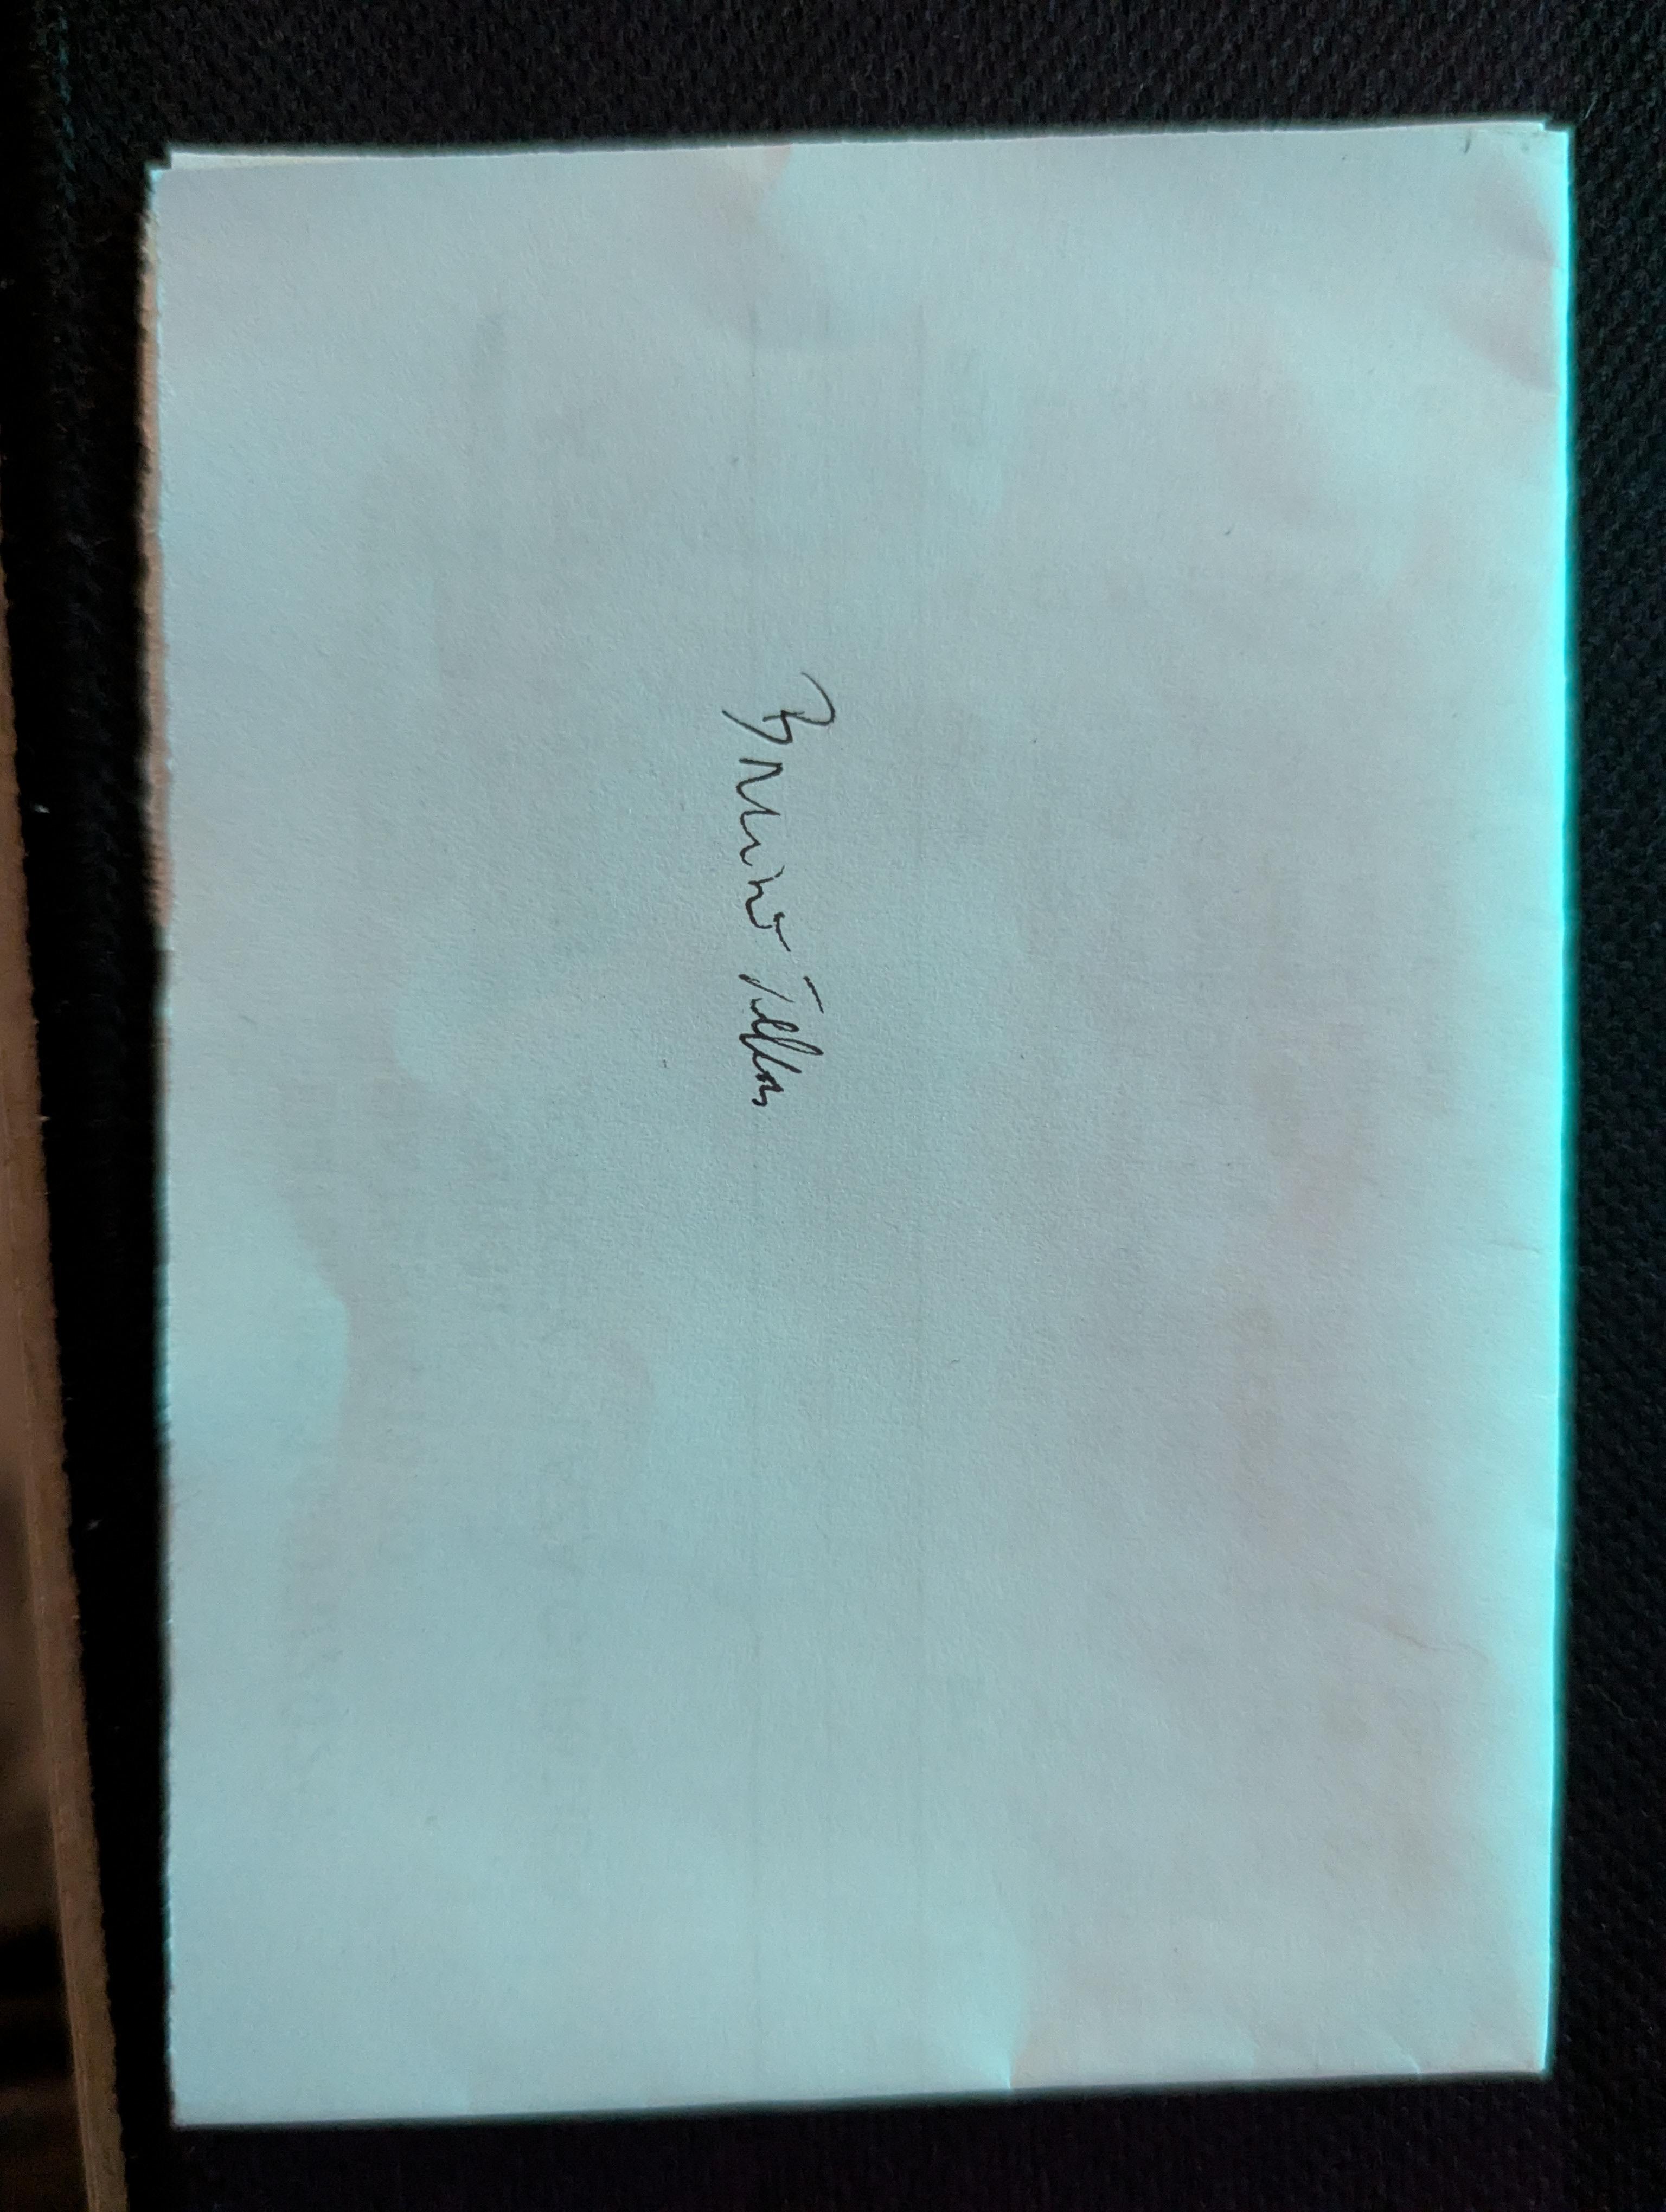 Bruno Tellos